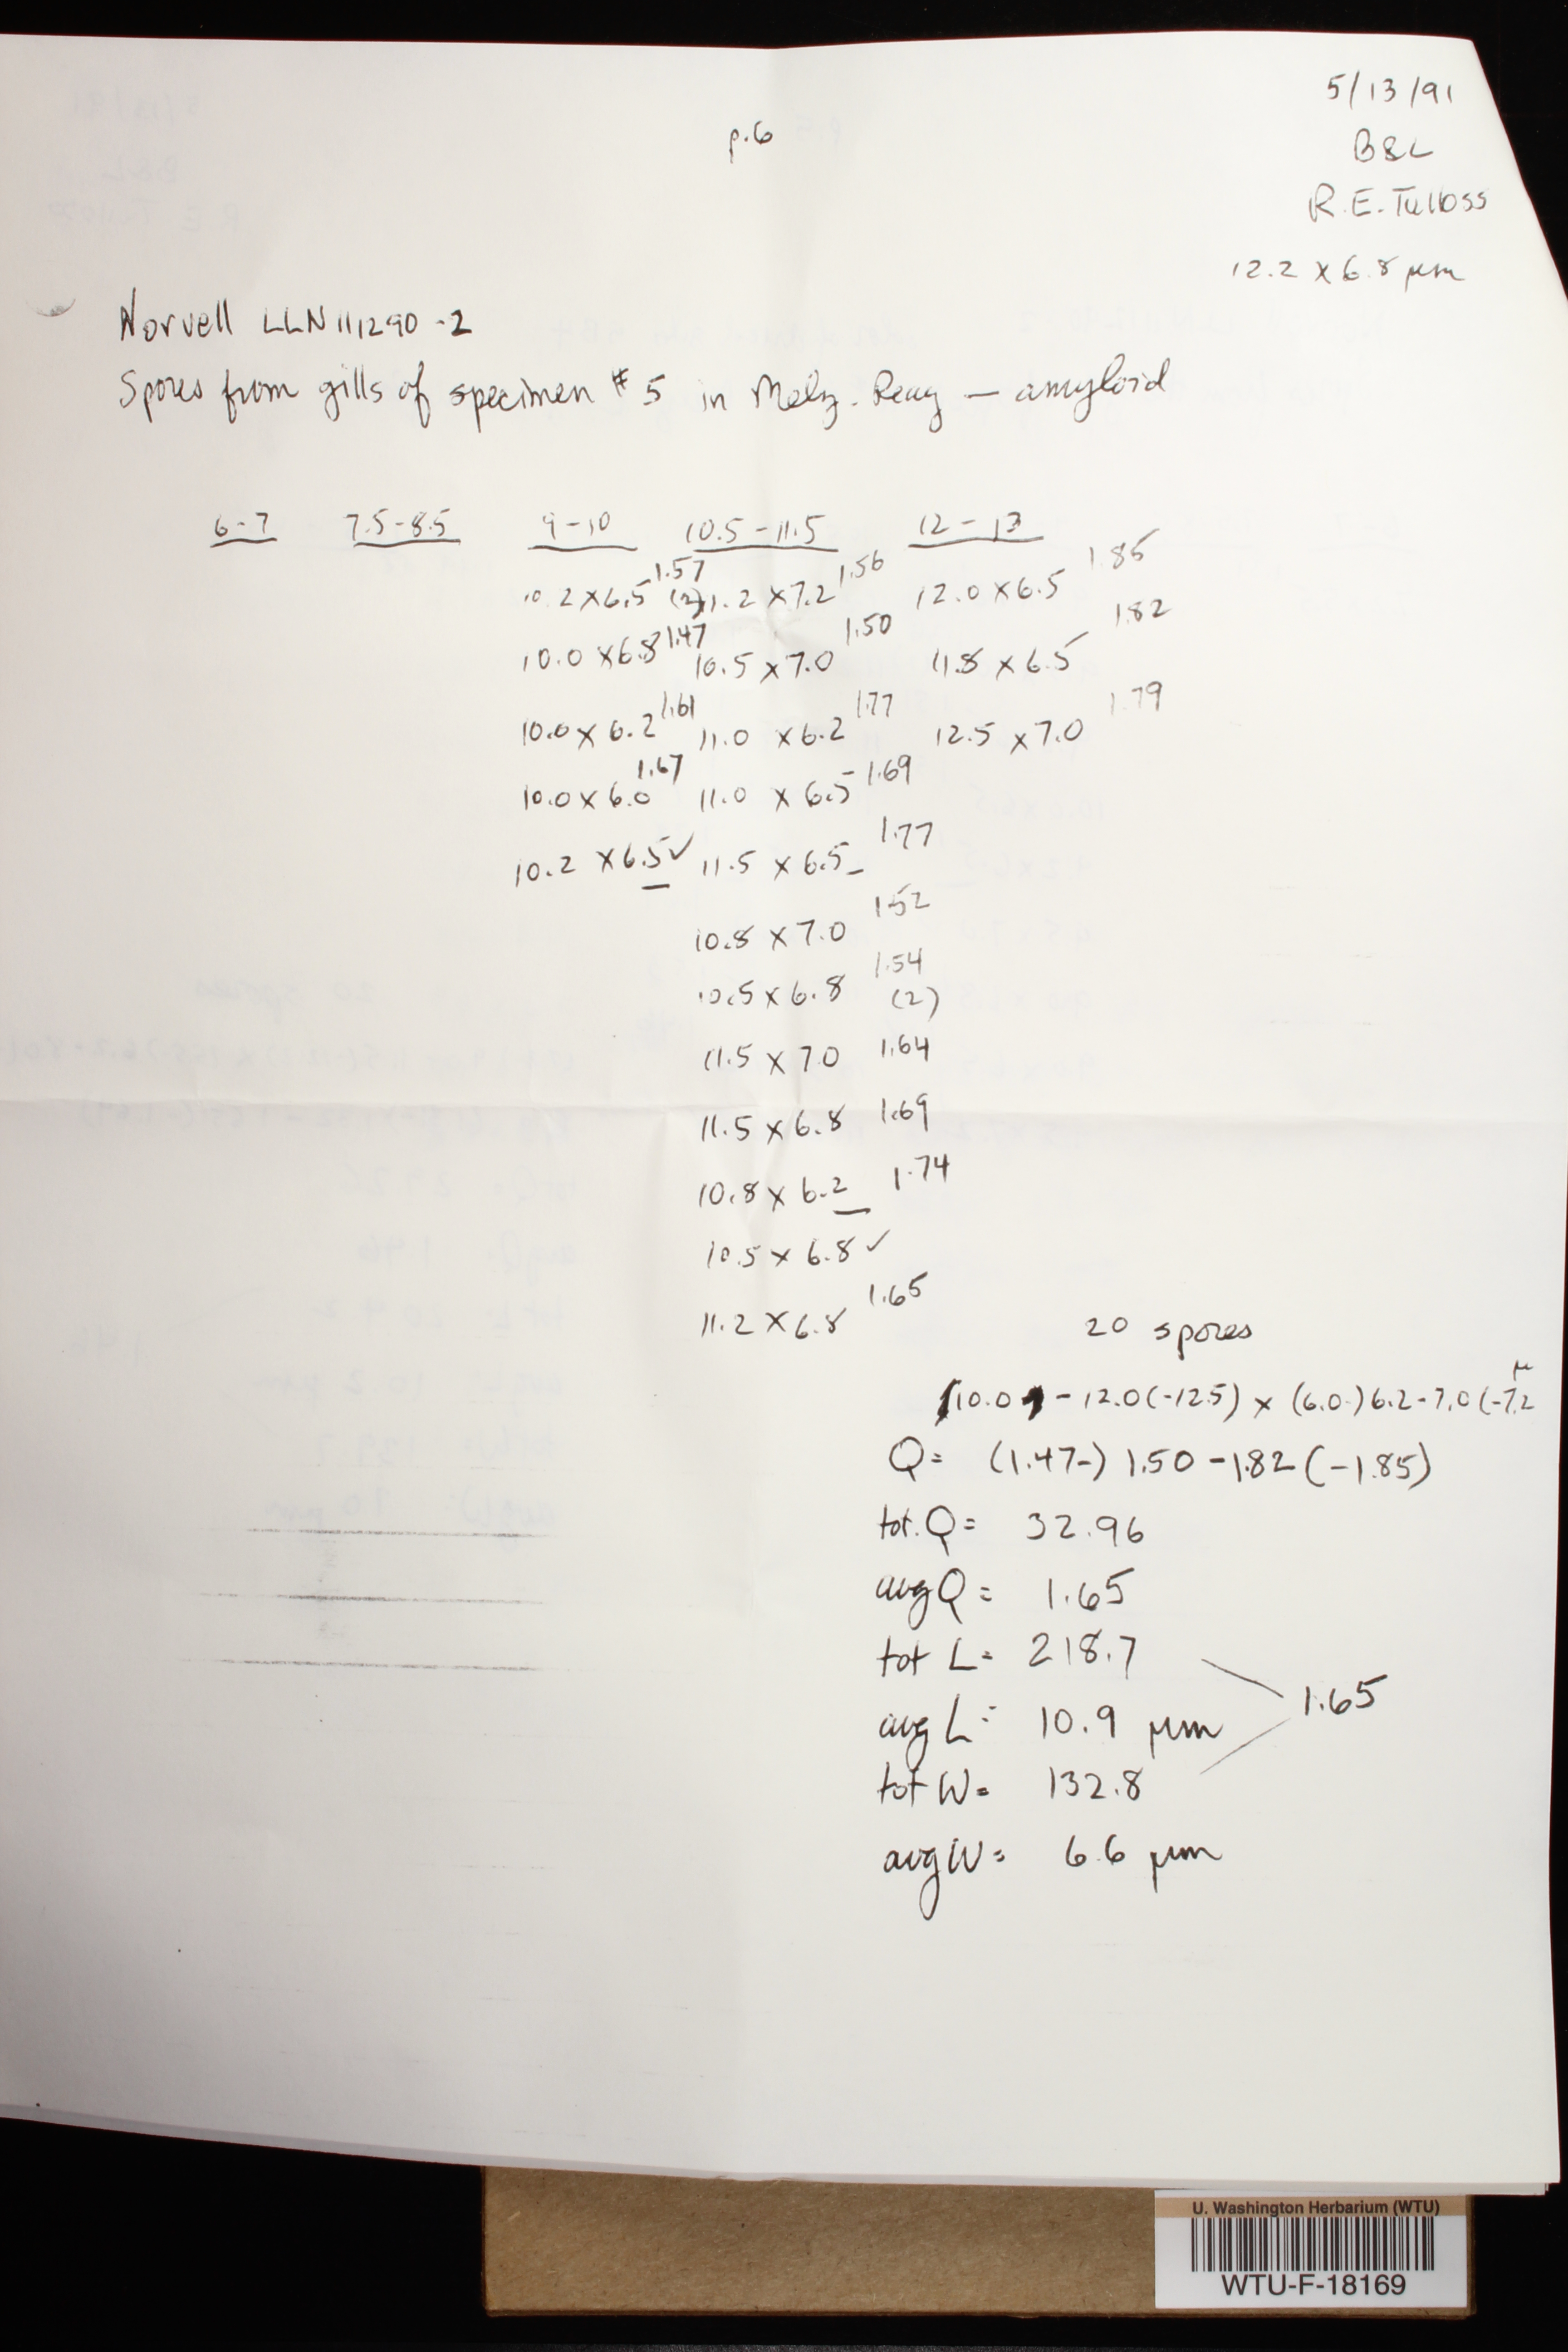 5/13/91
p.6
B&L
R.E. Tulloss
12.2 x 6.8 µm
Norvell LLN111290-2
Spores from gills of specimen #5 in Melz. Reag — amyloid
6-7 7.5-8.5 9-10 10.5-11.5 12-13
10.2 x 6.5 1.57 (2) 11.2 x 7.2 1.56 12.0 x 6.5 1.85
10.0 x 6.8 1.47 10.5 x 7.0 1.50 11.8 x 6.5 1.82
10.0 x 6.2 1.61 11.0 x 6.2 1.77 12.5 x 7.0 1.79
10.0 x 6.0 1.67 11.0 x 6.5 1.69
10.2 x 6.5 ✓ 11.5 x 6.5 1.77
10.8 x 7.0 1.52
10.5 x 6.8 1.54 (2)
11.5 x 7.0 1.64
11.5 x 6.8 1.69
10.8 x 6.2 1.74
10.5 x 6.8 ✓
11.2 x 6.8 1.65
20 spores
10.0 - 12.0 (-12.5) x (6.0-) 6.2-7.0 (-7.2 µ
Q = (1.47-) 1.50 - 1.82 (-1.85)
tot. Q = 32.96
avg Q = 1.65
tot L = 218.7
avg L = 10.9 µm 1.65
tot W = 132.8
avg W = 6.6 µm
U. Washington Herbarium (WTU)
WTU-F-18169